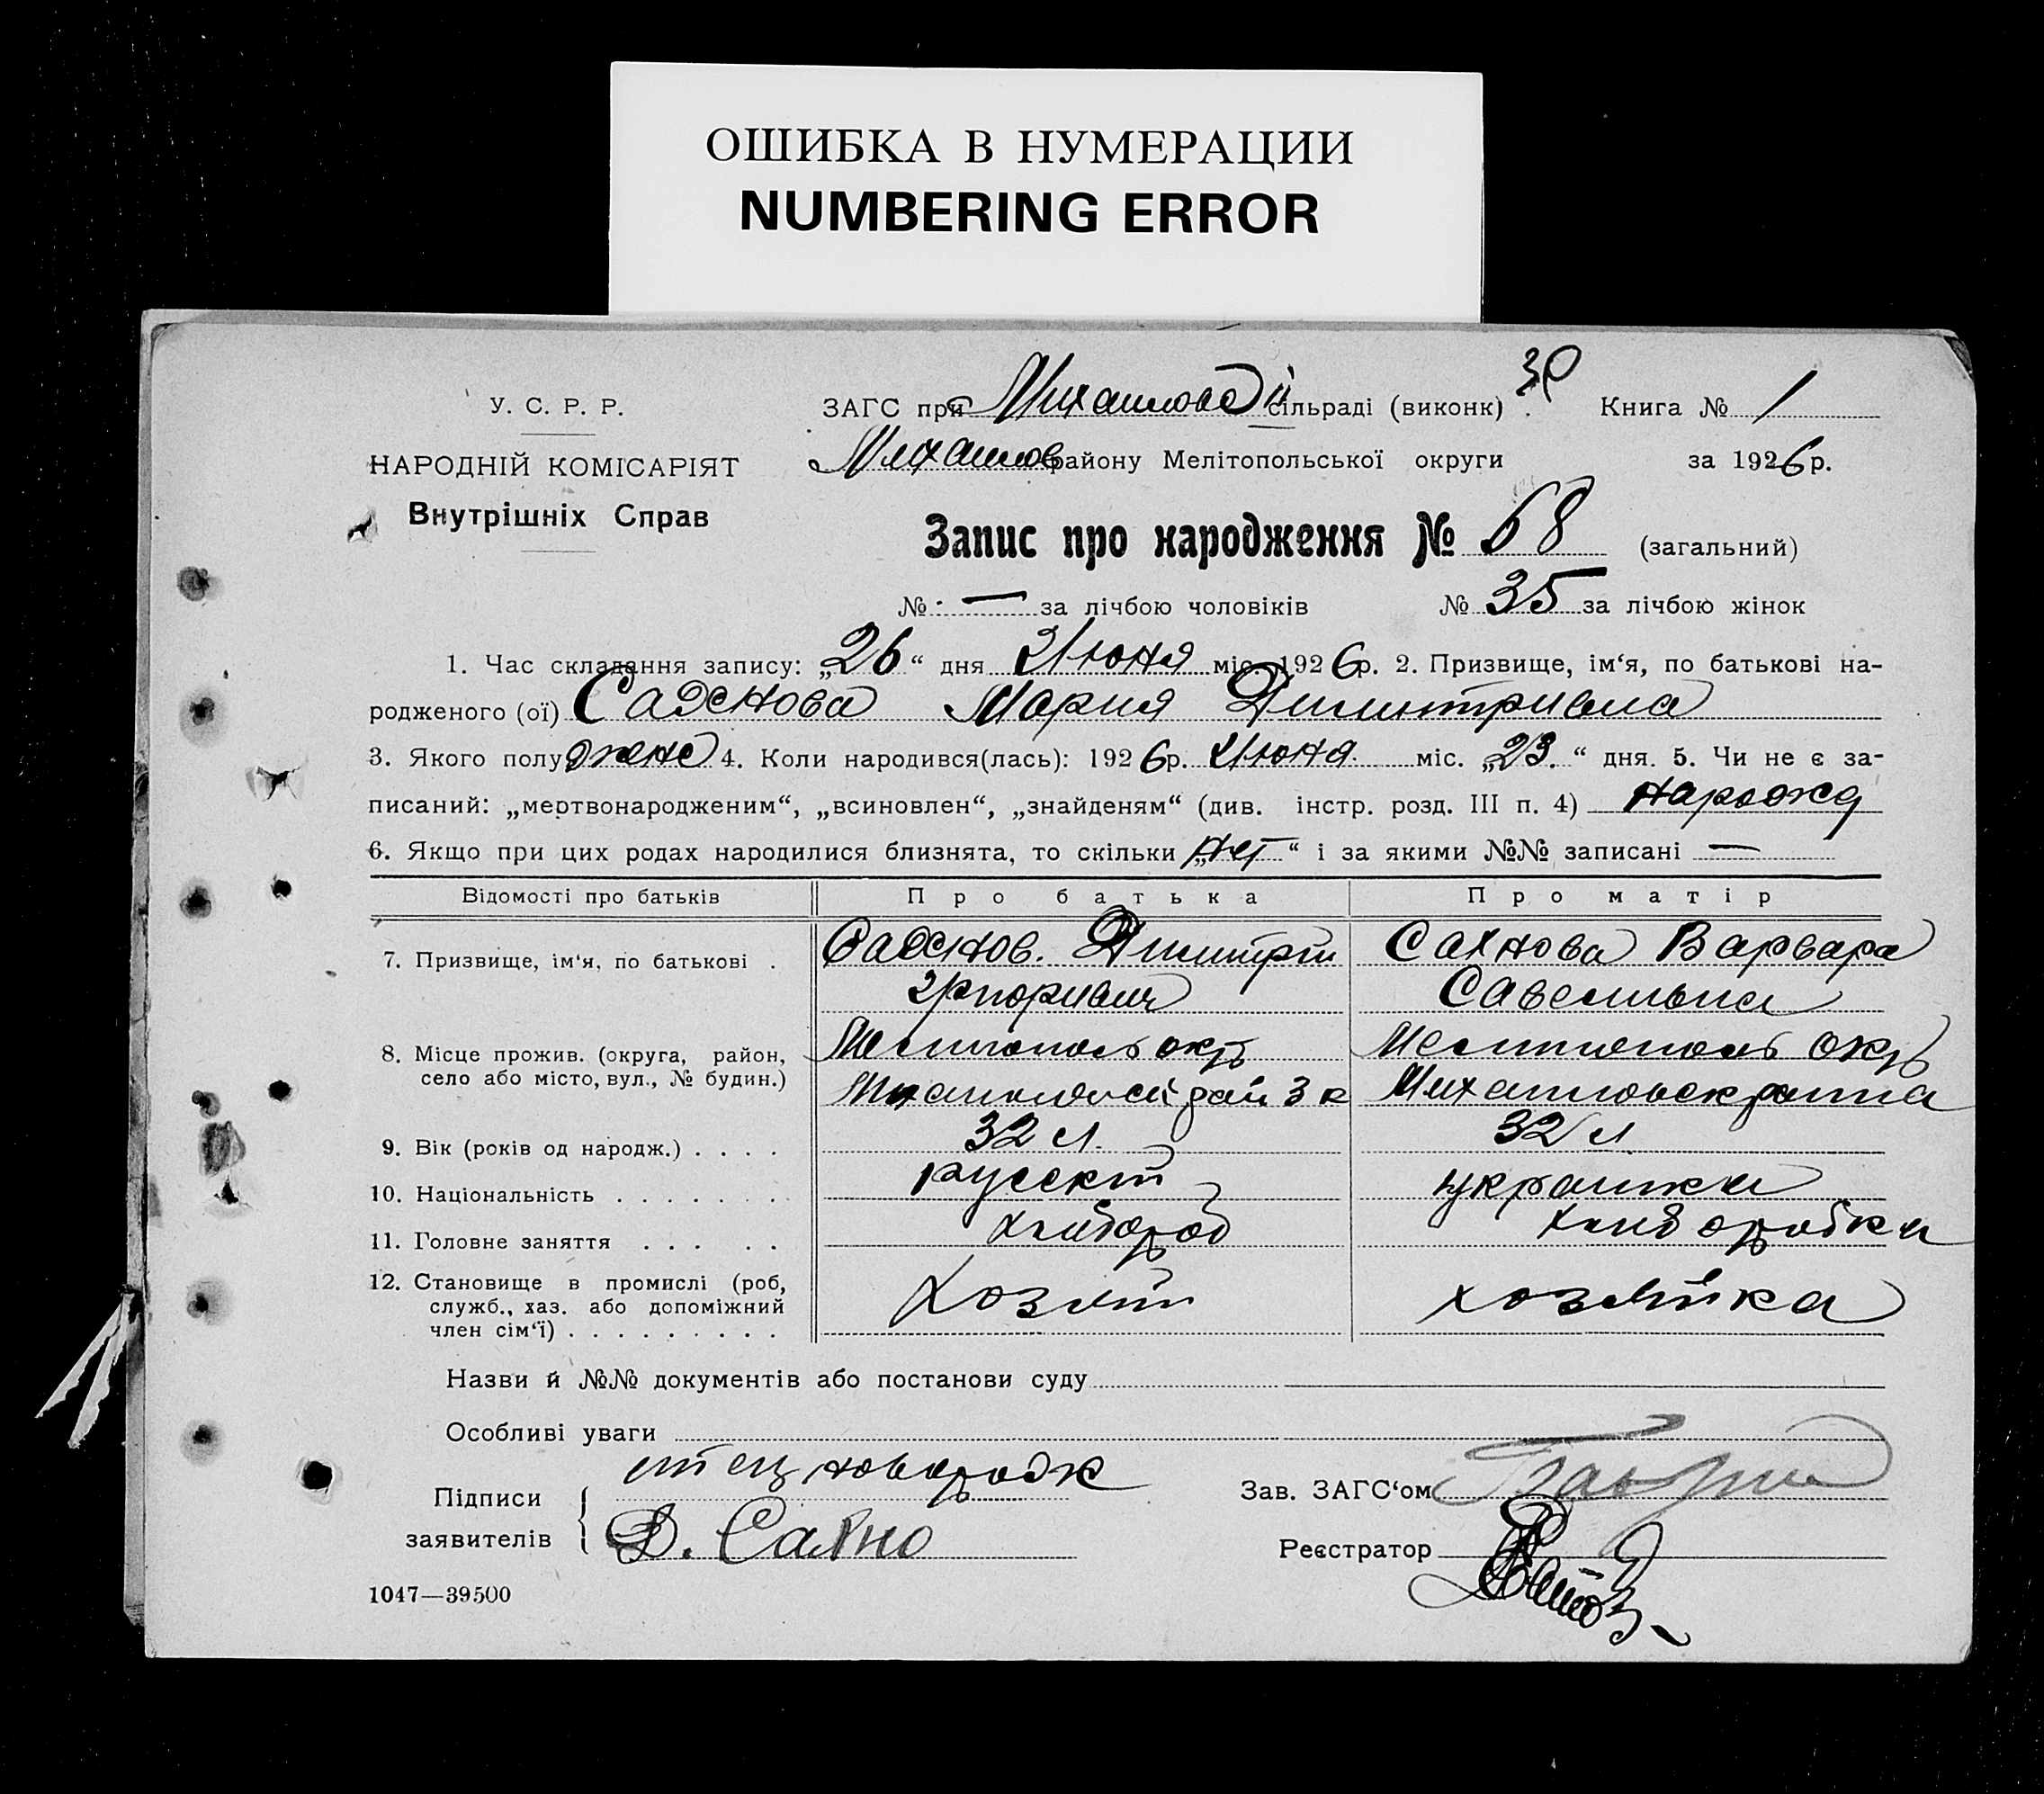 ОШИБКА В НУМЕРАЦИИ
NUMBERING ERROR
У. С. Р. Р.
НАРОДНІЙ КОМІСАРІЯТ
Внутрішніх Справ
ЗАГС при Михайловой сільраді (виконк) Книга № 1
Михайлов району Мелітопольської округи за 1926 р.
Запис про народження № 68 (загальний)
№ — за лічбою чоловіків № 35 за лічбою жінок
1. Час складання запису: „26“ дня Июня міс. 1926 р. 2. Призвище, ім‘я, по батькові на-
родженого (ої) Сахнова Мария Димитривна
3. Якого полу жене 4. Коли народився(лась): 1926 р. Июня міс. „23.“ дня. 5. Чи не є за-
писаний: „мертвонародженим“, „всиновлен“, „знайденям“ (див. інстр. розд. III п. 4) нарожд
6. Якщо при цих родах народилися близнята, то скільки „нет“ і за якими №№ записані —
Відомості про батьків Про батька Про матір
7. Призвище, ім‘я, по батькові . Сахнов. Димитрий Сахнова Варвара
Григоривич Савельивна
8. Місце прожив. (округа, район, село або місто, вул., № будин.) Мелитополь окр Мелитополь окр
Михайловский рай 3 к Михайловск района
9. Вік (років од народж.) . . . . 32 л. 32 л
10. Національність . . . . . . . русский украинка
11. Головне заняття . . . . . хлибороб хлиборобка
12. Становище в промислі (роб, служб., хаз. або допоміжний член сім‘ї) . . . . . . . . . Хозяин хозяйка
Назви й №№ документів або постанови суду
Особливі уваги
Підписи заявителів отец новорожд
Д. Сахно
Зав. ЗАГС‘ом
Реєстратор
1047—39500